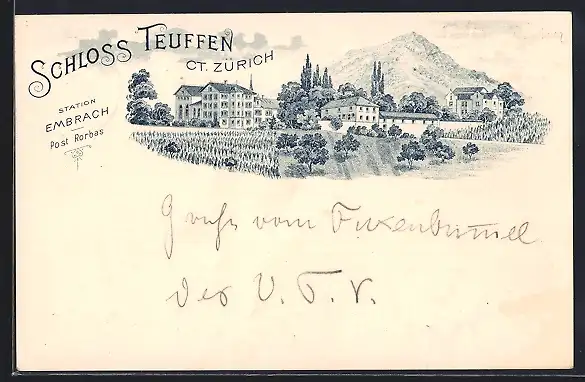 SCHLOSS TEUFFEN
CT. ZÜRICH
STATION
EMBRACH
Post Rorbas
Gruss vom Fuxenbummel
des V. T. V.